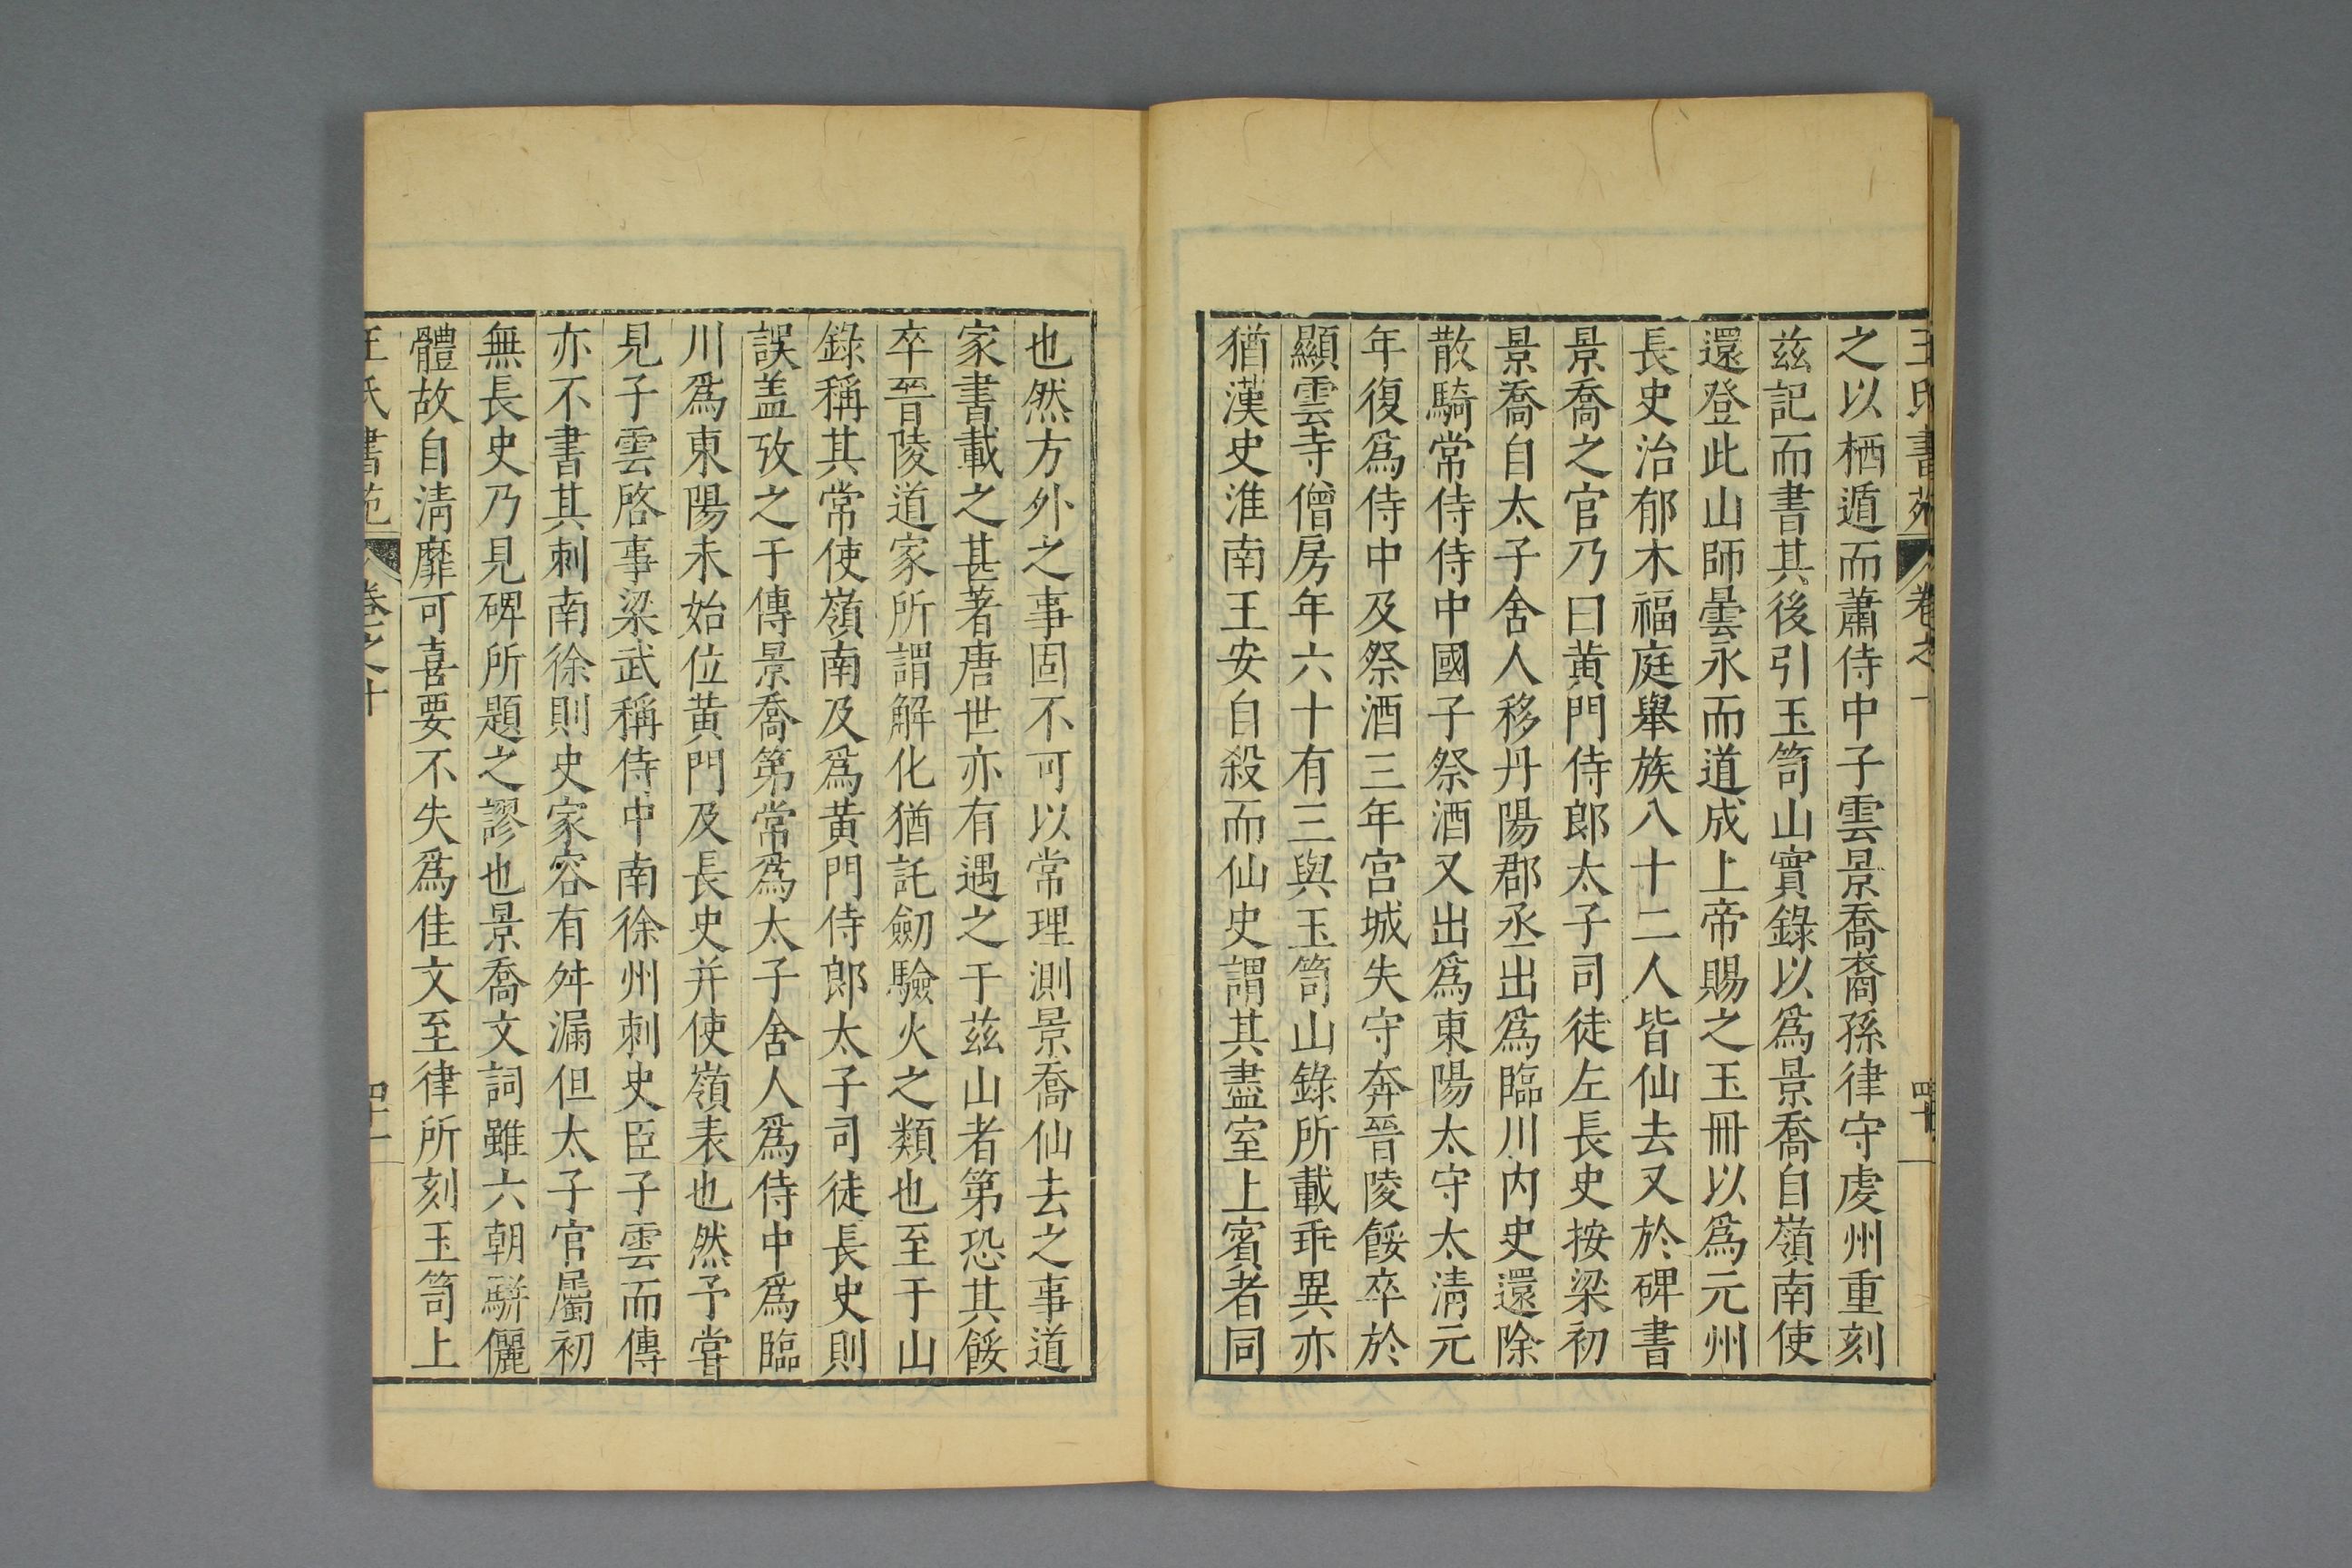 王氏書苑 卷之十 四十
之以栖遁而蕭侍中子雲景喬裔孫律守虔州重刻
茲記而書其後引玉笥山實錄以爲景喬自嶺南使
還登此山師曇永而道成上帝賜之玉冊以爲元州
長史治郁木福庭舉族八十二人皆仙去又於碑書
景喬之官乃曰黄門侍郎太子司徒左長史按梁初
景喬自太子舍人移丹陽郡丞出爲臨川内史還除
散騎常侍侍中國子祭酒又出爲東陽太守太清元
年復爲侍中及祭酒三年宫城失守奔晉陵餒卒於
顯雲寺僧房年六十有三與玉笥山錄所載乖異亦
猶漢史淮南王安自殺而仙史謂其盡室上賓者同
也然方外之事固不可以常理測景喬仙去之事道
家書載之甚著唐世亦有遇之于茲山者第恐其餒
卒晉陵道家所謂解化猶託劒驗火之類也至于山
錄稱其常使嶺南及爲黄門侍郎太子司徒長史則
誤盖攷之于傳景喬第常爲太子舍人爲侍中爲臨
川爲東陽未始位黄門及長史并使嶺表也然予嘗
見子雲啓事梁武稱侍中南徐州刺史臣子雲而傳
亦不書其刺南徐則史家容有舛漏但太子官屬初
無長史乃見碑所題之謬也景喬文詞雖六朝騈儷
體故自淸靡可喜要不失爲佳文至律所刻玉笥上
王氏書苑 卷之十 四十一